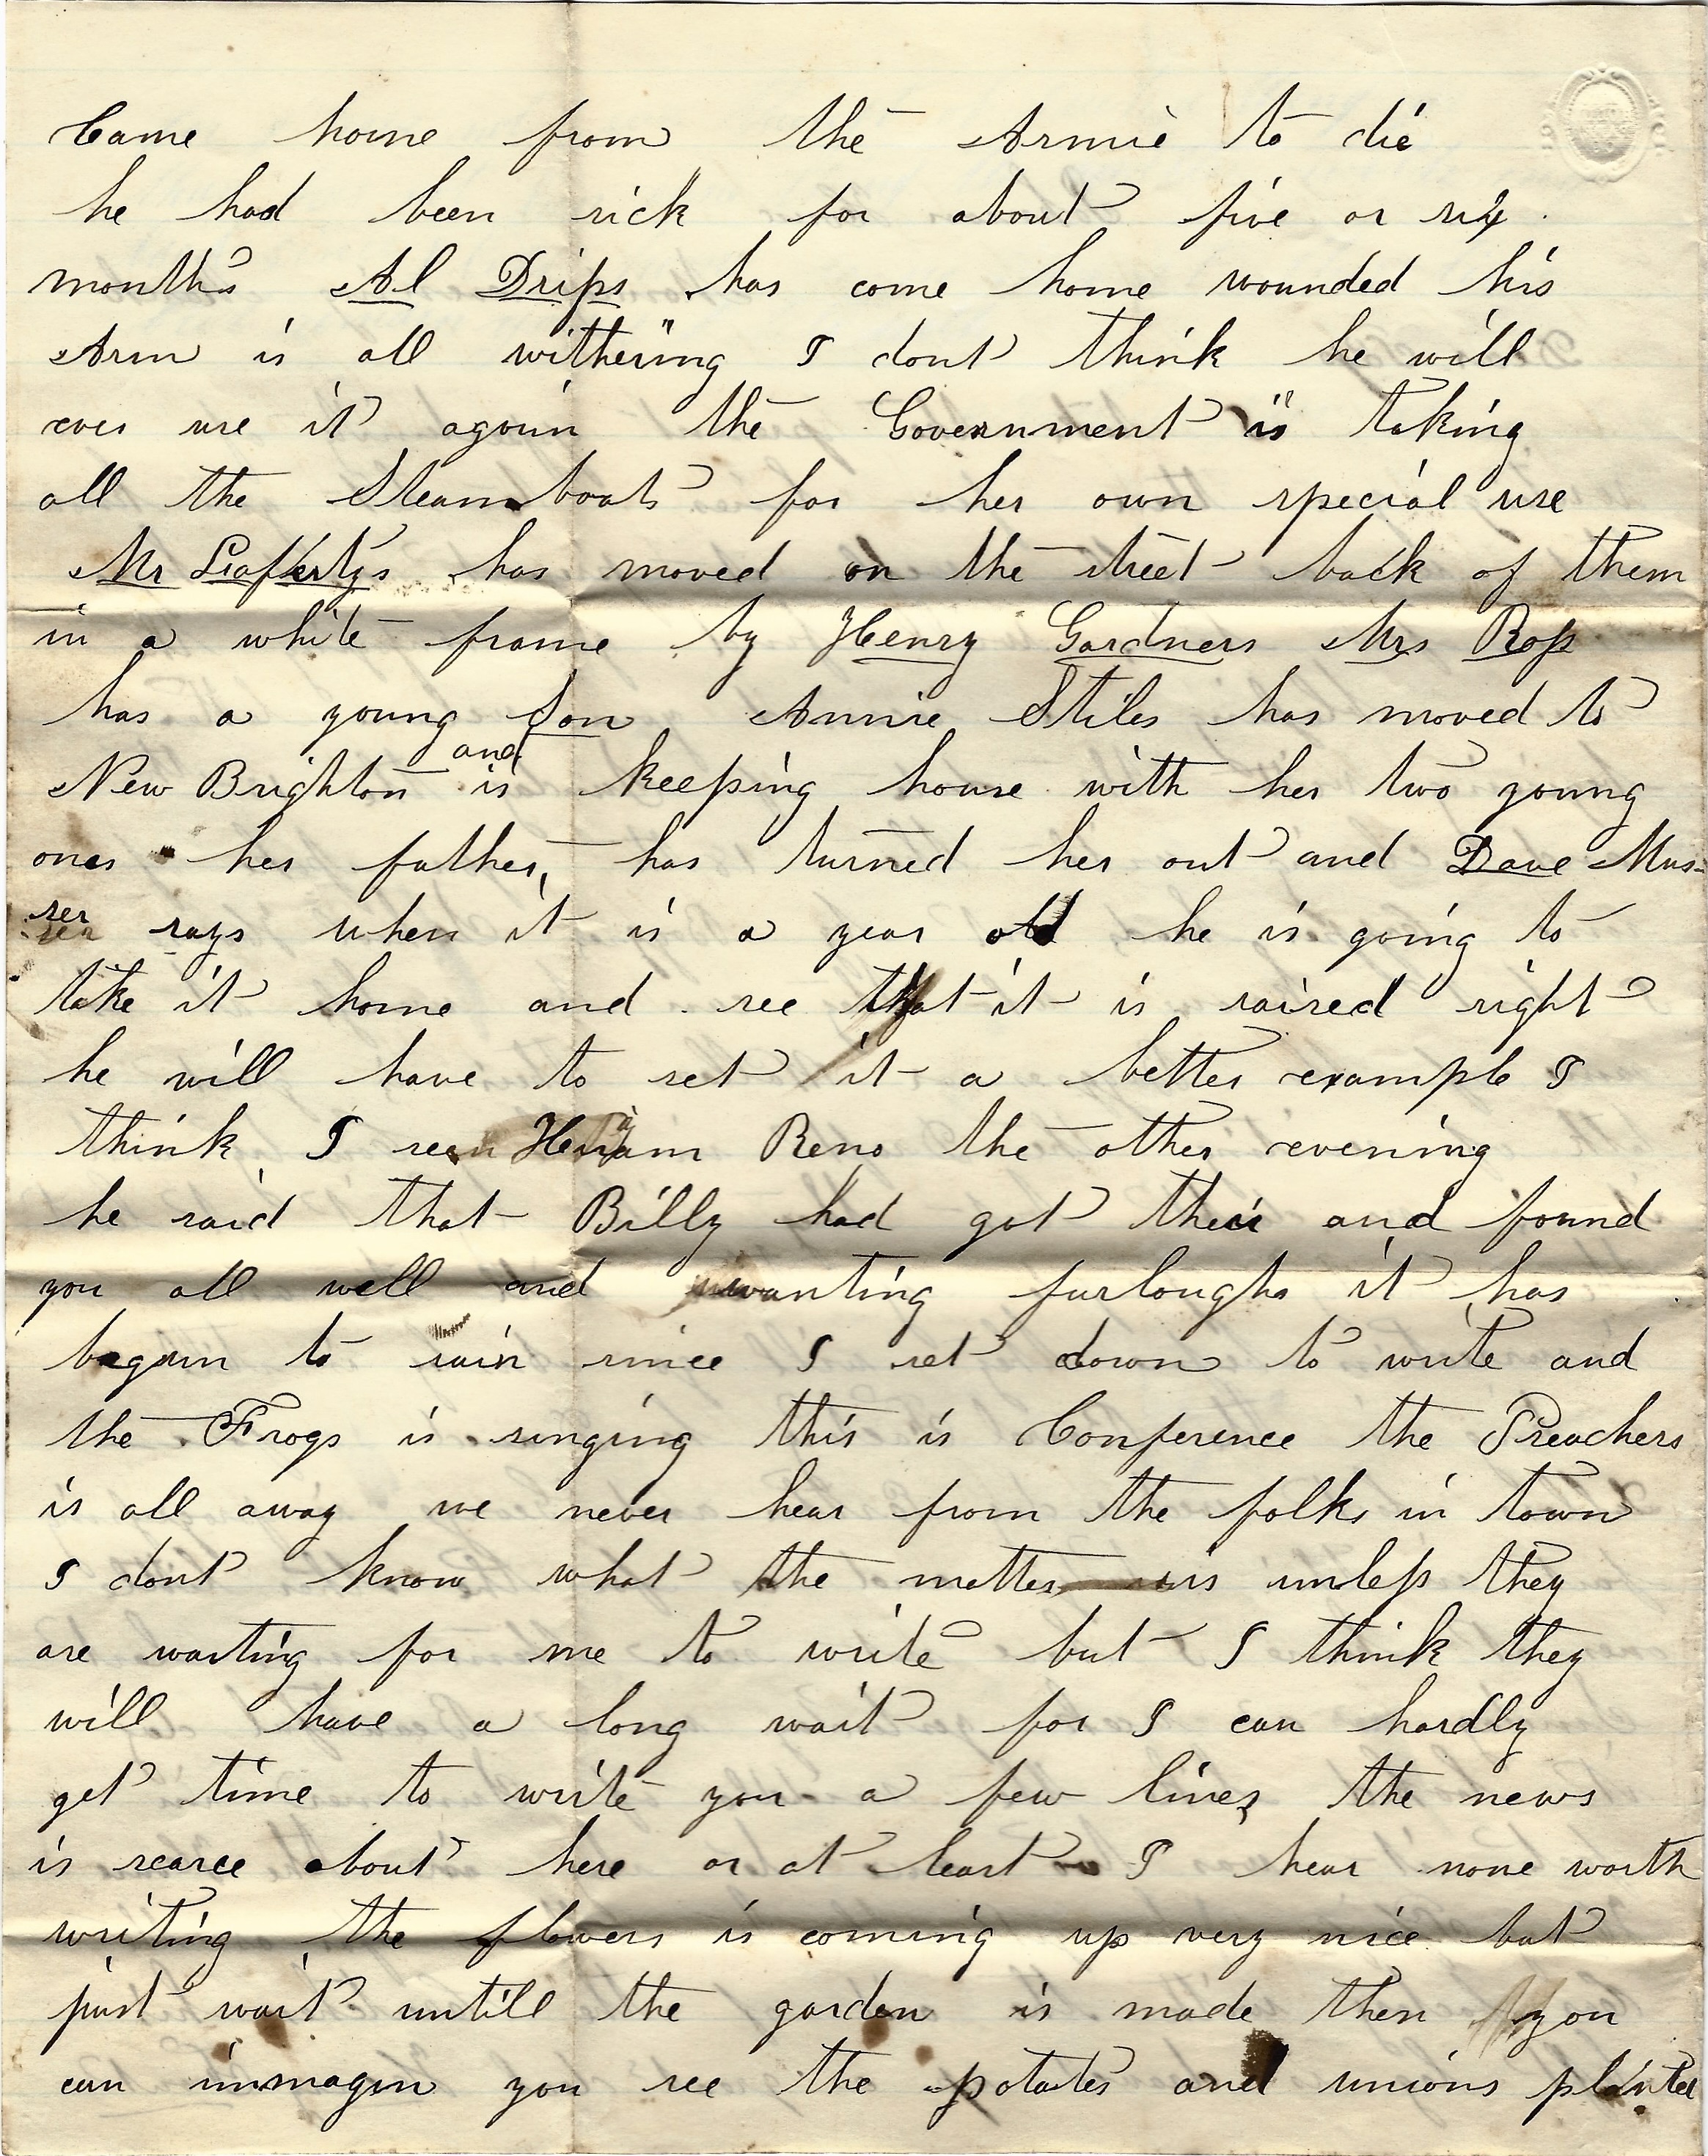 Came home from the Armie to die
he had been sick for about five or six
months Al Drips has come home wounded his
Arm is all withering I dont think he will
ever use it again the Government is taking
all the Steamboats for her own special use
Mr Laffertys has moved on the street back of them
in a white frame by Henry Gardners Mrs Ross
has a young Son Annie Stiles has moved to
New Brighton and is keeping house with her two young
ones her father has turned her out and Dave Mus-
ser says when it is a year old he is going to
take it home and see that it is raised right
he will have to set it a better example I
think I seen Hiram Reno the other evening
he said that Billy had got their and found
you all well and wanting furloughs it has
begun to rain since I set down to write and
the Frogs is singing this is Conference the Preachers
is all away we never hear from the folks in town
I dont know what the matter is unless they
are waiting for me to write but I think they
will have a long wait for I can hardly
get time to write you a few lines the news
is scarce about here or at least I hear none worth
writing the flowers is coming up very nice but
just wait untill the garden is made then you
can immagin you see the potatoes and unions planted